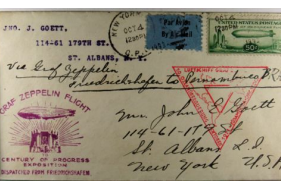 JNO. J. GOETT,
114-61 179TH ST.
ST. ALBANS, N. Y.
NEW YORK
OCT 4
1933
Par Avion
By Air Mail
UNITED STATES POSTAGE
50¢
via Graf Zeppelin
Friedrichshafen to Pernambuco
GRAF ZEPPELIN FLIGHT
CENTURY OF PROGRESS
EXPOSITION
DESPATCHED FROM FRIEDRICHSHAFEN
Mr. John J. Goett
114-61-179 St
St. Albans L.I.
New York U.S.A.